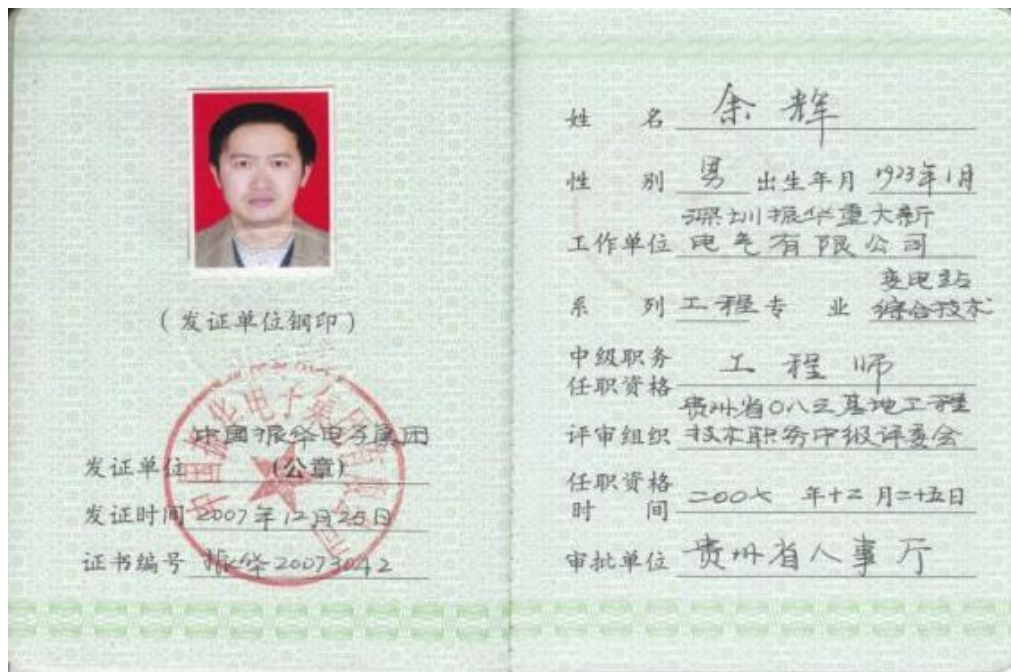 (发证单位钢印)
中国振华电子集团有限公司
中国振华电子集团
发证单位 (公章)
发证时间 2007年12月25日
证书编号 振华20073042
姓 名 余辉
性 别 男 出生年月 1973年1月
深圳振华重大新
工作单位 电气有限公司
变电站
系 列 工程 专 业 综合技术
中级职务
任职资格 工程师
贵州省〇八三基地工程
评审组织 技术职务中级评委会
任职资格
时 间 二〇〇七 年十二月二十五日
审批单位 贵州省人事厅